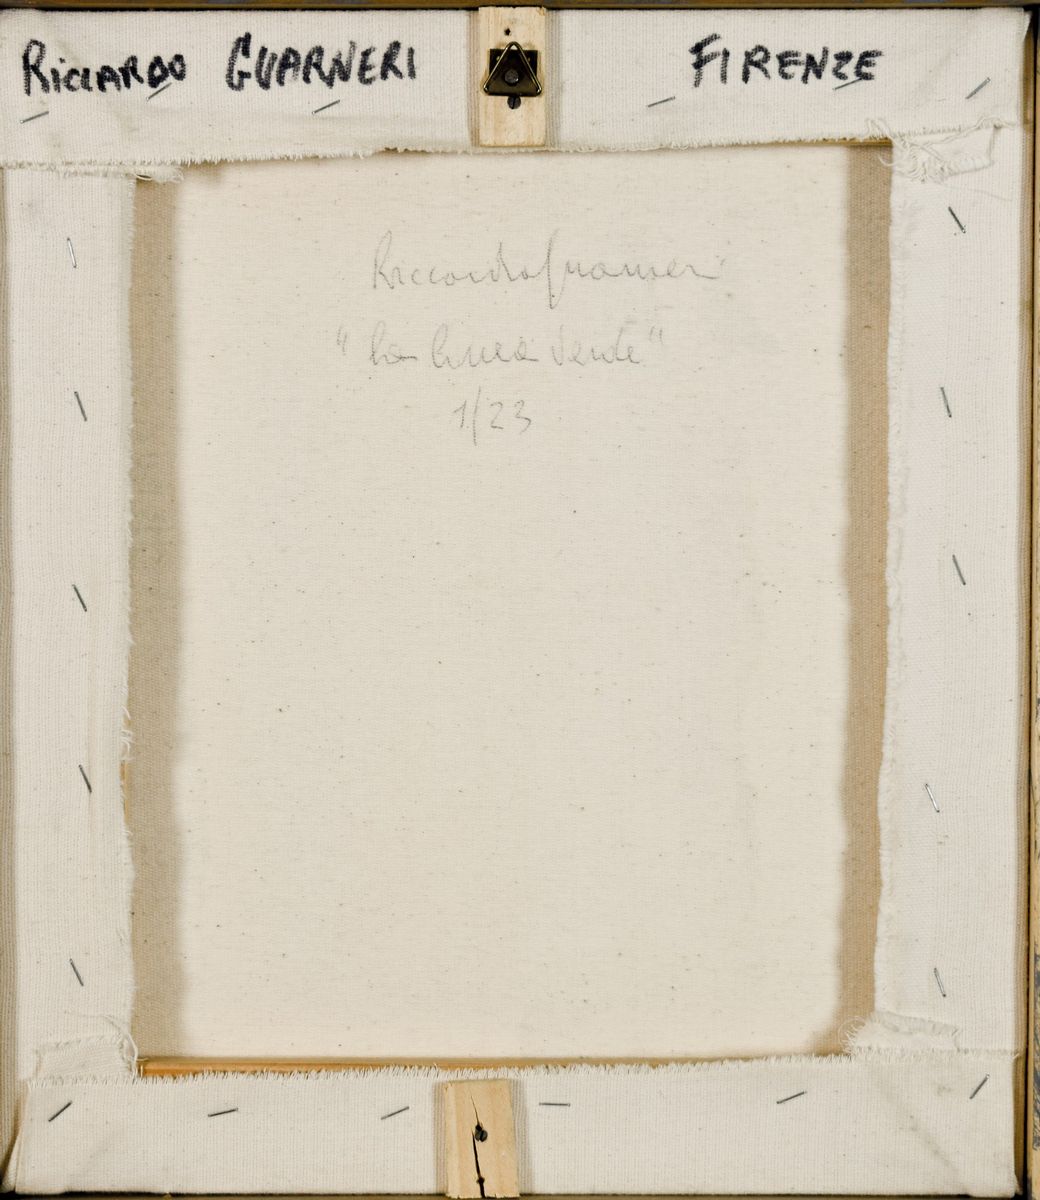 RiCCARDO GUARNERI FIRENZE
Riccardo Guarneri
"La linea verde"
1/23